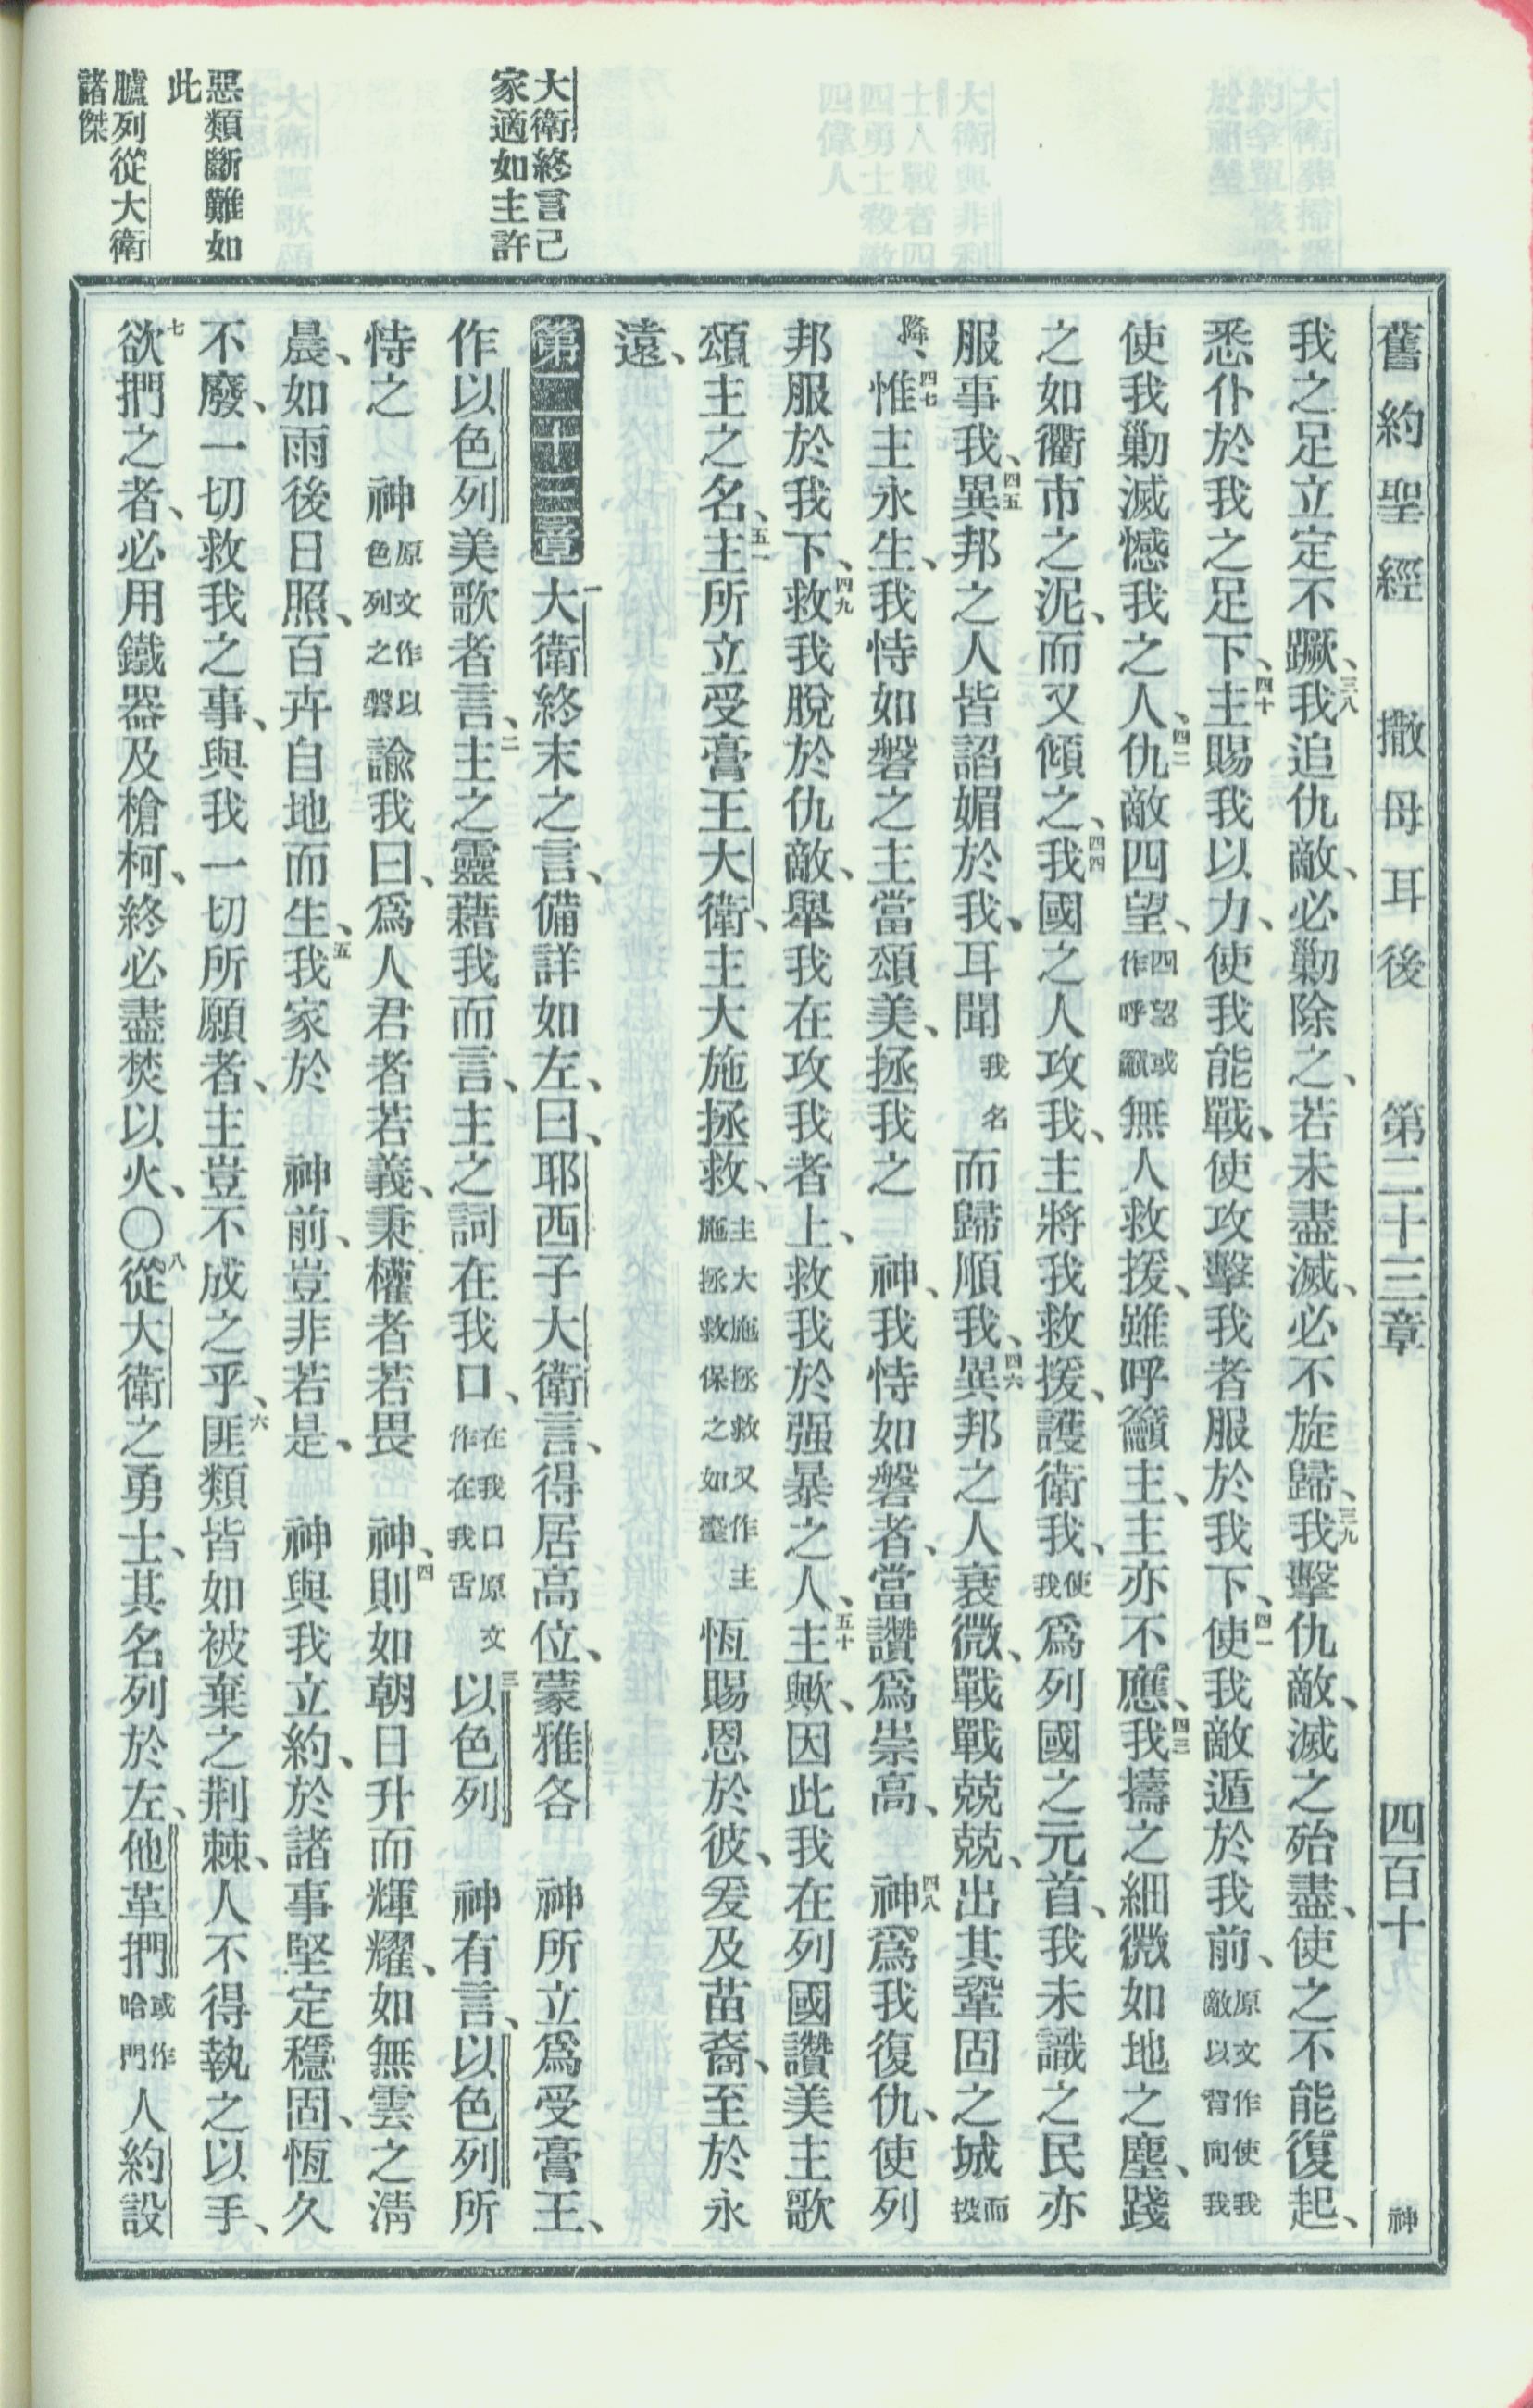 舊約聖經　撒母耳後　第二十三章　四百十　神
我之足立定不蹶、三八我追仇敵、必剿除之、若未盡滅、必不旋歸、三九我擊仇敵、滅之殆盡、使之不能復起、
悉仆於我之足下、四十主賜我以力、使我能戰、使攻擊我者服於我下、四一使我敵遁於我前、原文作使我敵以背向我
使我剿滅憾我之人、四二仇敵四望、四望或作呼籲無人救援、雖呼籲主、主亦不應、四三我擣之細微如地之塵、踐
之如衢市之泥、而又傾之、四四我國之人攻我、主將我救援、護衛我、使我爲列國之元首、我未識之民亦
服事我、四五異邦之人皆諂媚於我、耳聞我名而歸順我、四六異邦之人衰微、戰戰兢兢、出其鞏固之城而投
降、四七惟主永生、我恃如磐之主當頌美、拯我之　神、我恃如磐者、當讚爲崇高、　四八神爲我復仇、使列
邦服於我下、四九救我脫於仇敵、舉我在攻我者上、救我於强暴之人、五十主歟、因此我在列國讚美主歌
頌主之名、五一主所立受膏王大衛、主大施拯救、主大施拯救又作主施拯救保之如臺恆賜恩於彼、爰及苗裔、至於永
遠、
第二十三章　一大衛終末之言、備詳如左、曰、耶西子大衛言、得居高位、蒙雅各　神所立爲受膏王、
作以色列美歌者言、二主之靈藉我而言、主之詞在我口、在我口原文作在我舌三以色列　神有言、以色列所
恃之　神原文作以色列之磐諭我曰、爲人君者若義、秉權者若畏　神、四則如朝日升而輝耀、如無雲之淸
晨、如雨後日照、百卉自地而生、五我家於　神前、豈非若是、　神與我立約、於諸事堅定穩固、恆久
不廢、一切救我之事、與我一切所願者、主豈不成之乎、六匪類皆如被棄之荆棘、人不得執之以手、
七欲捫之者、必用鐵器及槍柯、終必盡焚以火、〇八從大衛之勇士、其名列於左、他革捫或作哈門人約設
大衛終言己
家適如主許
惡類斷難如
此
臚列從大衛
諸傑